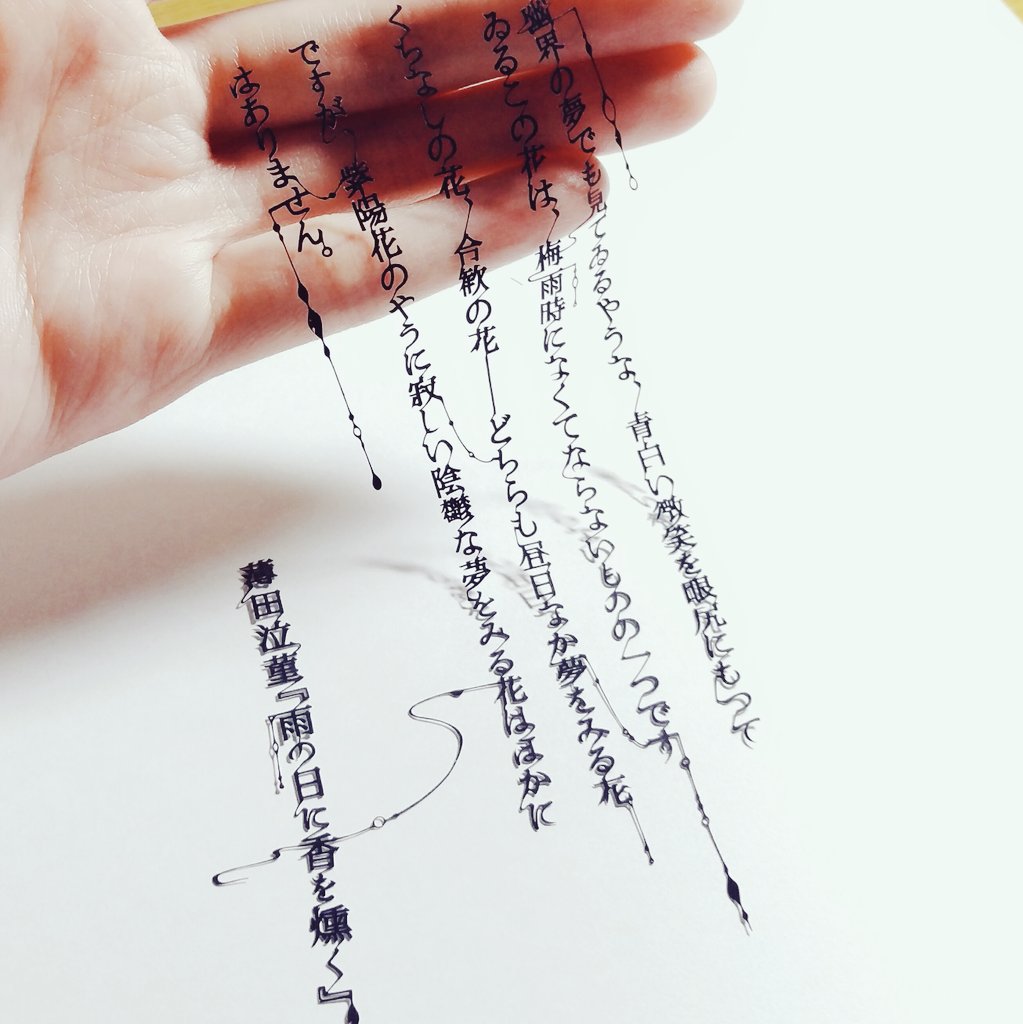 幽界の夢でも見てゐるやうな、青白い微笑を眼尻にもつて
ゐるこの花は、梅雨時になくてならないものの一つです
くちなしの花、合歓の花―どちらも昼日なか夢をみる花
ですが、紫陽花のやうに寂しい陰鬱な夢をみる花はほかに
はありません。
薄田泣菫『雨の日に香を燻く』